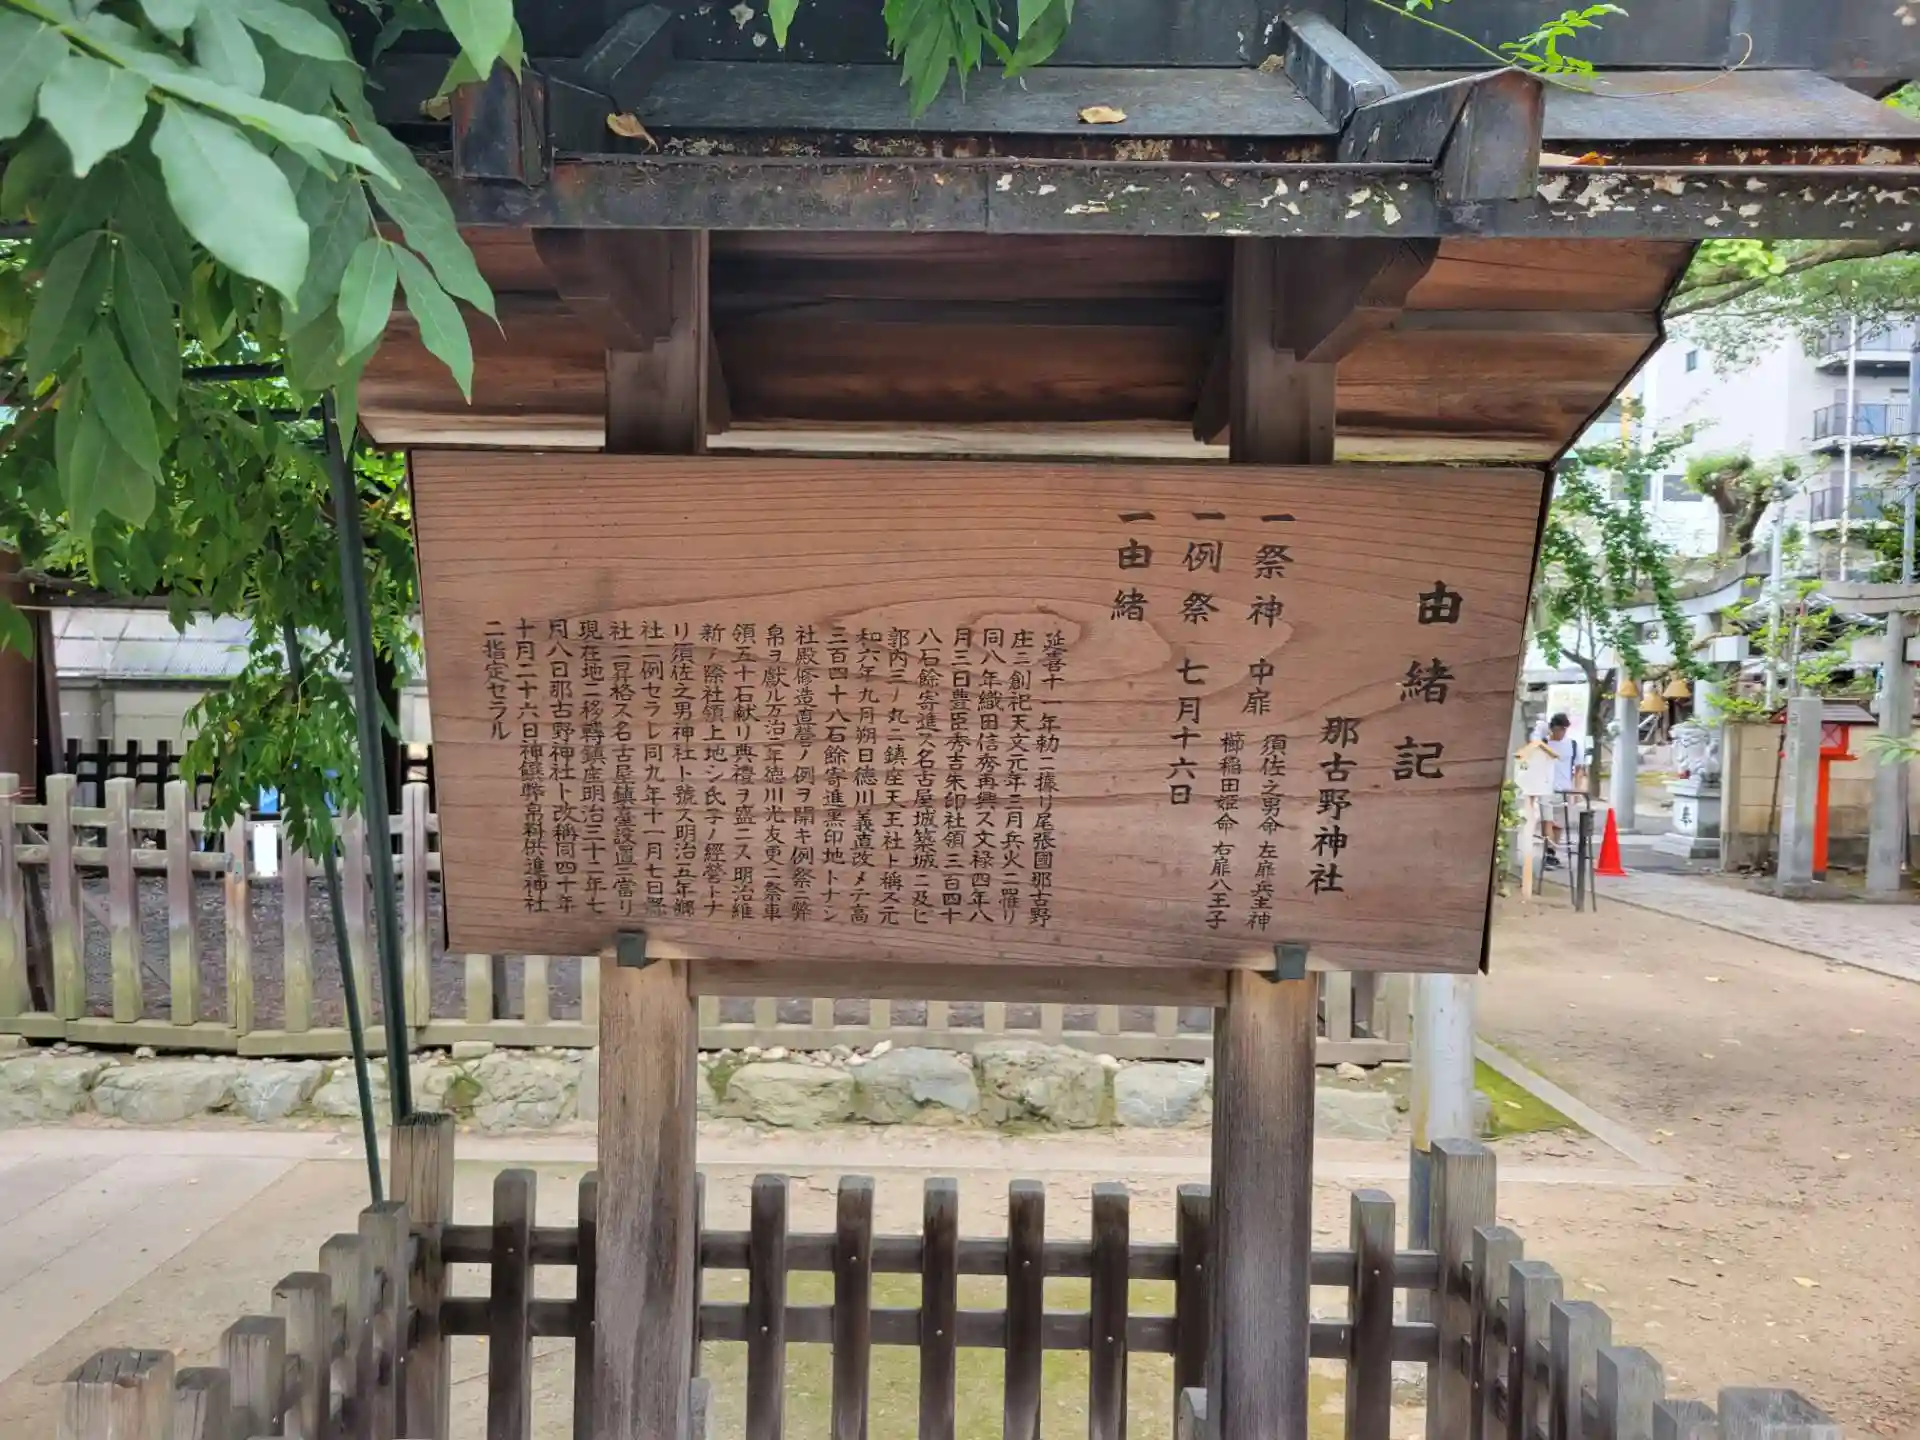 由緒記
那古野神社
一祭神 中扉 須佐之男命 左扉兵主神
櫛稲田姫命 右扉八王子
一例祭 七月十六日
一由緒
延喜十一年勅ニ據リ尾張國那古野
庄ニ創祀天文元年三月兵火ニ罹リ
同八年織田信秀再興ス文禄四年八
月三日豊臣秀吉朱印社領三百四十
八石餘寄進ス名古屋城築城ニ及ヒ
郭内三ノ丸ニ鎮座天王社ト稱ス元
和六年九月朔日徳川義直改メテ高
三百四十八石餘寄進黒印地トナシ
社殿修造直營ノ例ヲ開キ例祭ニ幣
帛ヲ獻ル万治二年徳川光友更ニ祭車
領五十石献リ典禮ヲ盛ニス明治維
新ノ際社領上地シ氏子ノ經營トナ
リ須佐之男神社ト號ス明治五年郷
社ニ例セラレ同九年十一月七日縣
社ニ昇格ス名古屋鎮臺設置ニ當リ
現在地ニ移轉鎮座明治三十二年七
月八日那古野神社ト改稱同四十年
十月二十六日神饌幣帛料供進神社
ニ指定セラル